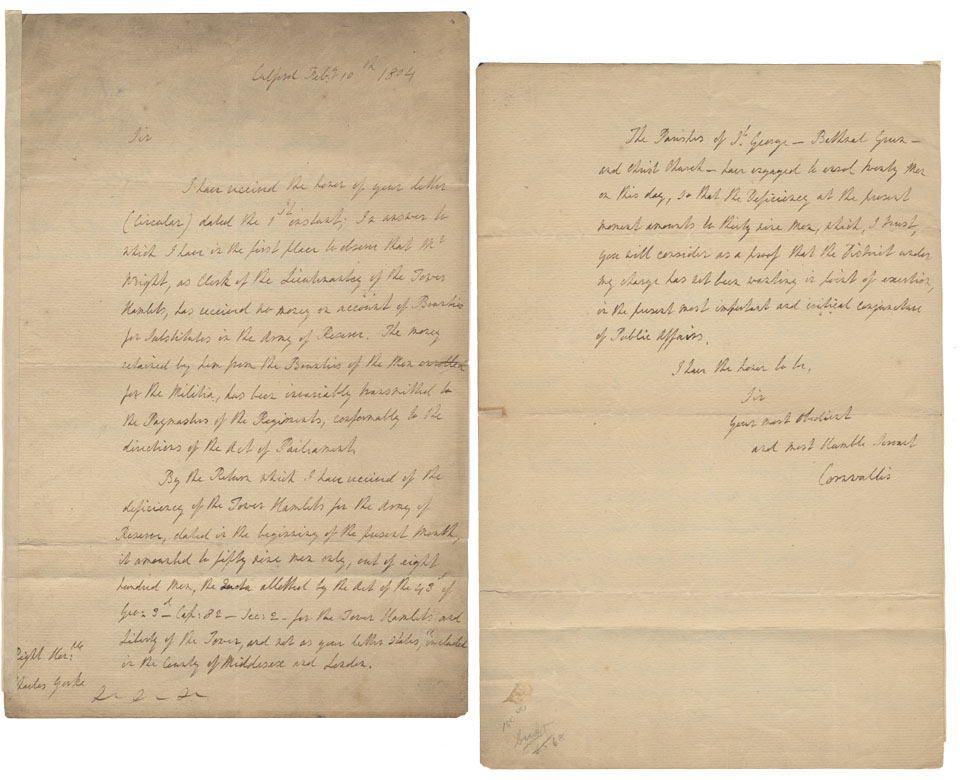 Culford Feby 10th 1804
Sir
I have received the honor of your letter
(Circular) dated the 1st instant; In answer to
which I have in the first place to observe that Mr
Wright, as Clerk of the Lieutenantcy of the Tower
Hamlets, has received no money on account of Bounties
for Substitutes in the Army of Reserve. The money
retained by him from the Bounties of the Men enrolled
for the Militia, has been invariably transmitted to
the Paymasters of the Regiments, conformably to the
directions of the Act of Parliament.
By the Return which I have received of the
deficiency of the Tower Hamlets for the Army of
Reserve, dated in the beginning of the present Month,
it amounted to fifty nine men only, out of eight
hundred Men, the Quota allotted by the Act of the 43d of
Geo: 3d - Cap: 82 - Sec: 2 - for the Tower Hamlets and
Liberty of the Tower, and not as your letter states, "included
in the County of Middlesex and London.
Right Honble
Charles Yorke
The Parishes of St George - Bethnal Green -
and Christ Church - have engaged to enrol twenty Men
on this day, so that the Deficiency at the present
moment amounts to thirty nine Men, which, I trust,
you will consider as a proof that the District under
my charge has not been wanting in point of exertion,
in the present most important and critical conjuncture
of Public Affairs.
I have the honor to be,
Sir
Your most Obedient
and most Humble Servant
Cornwallis